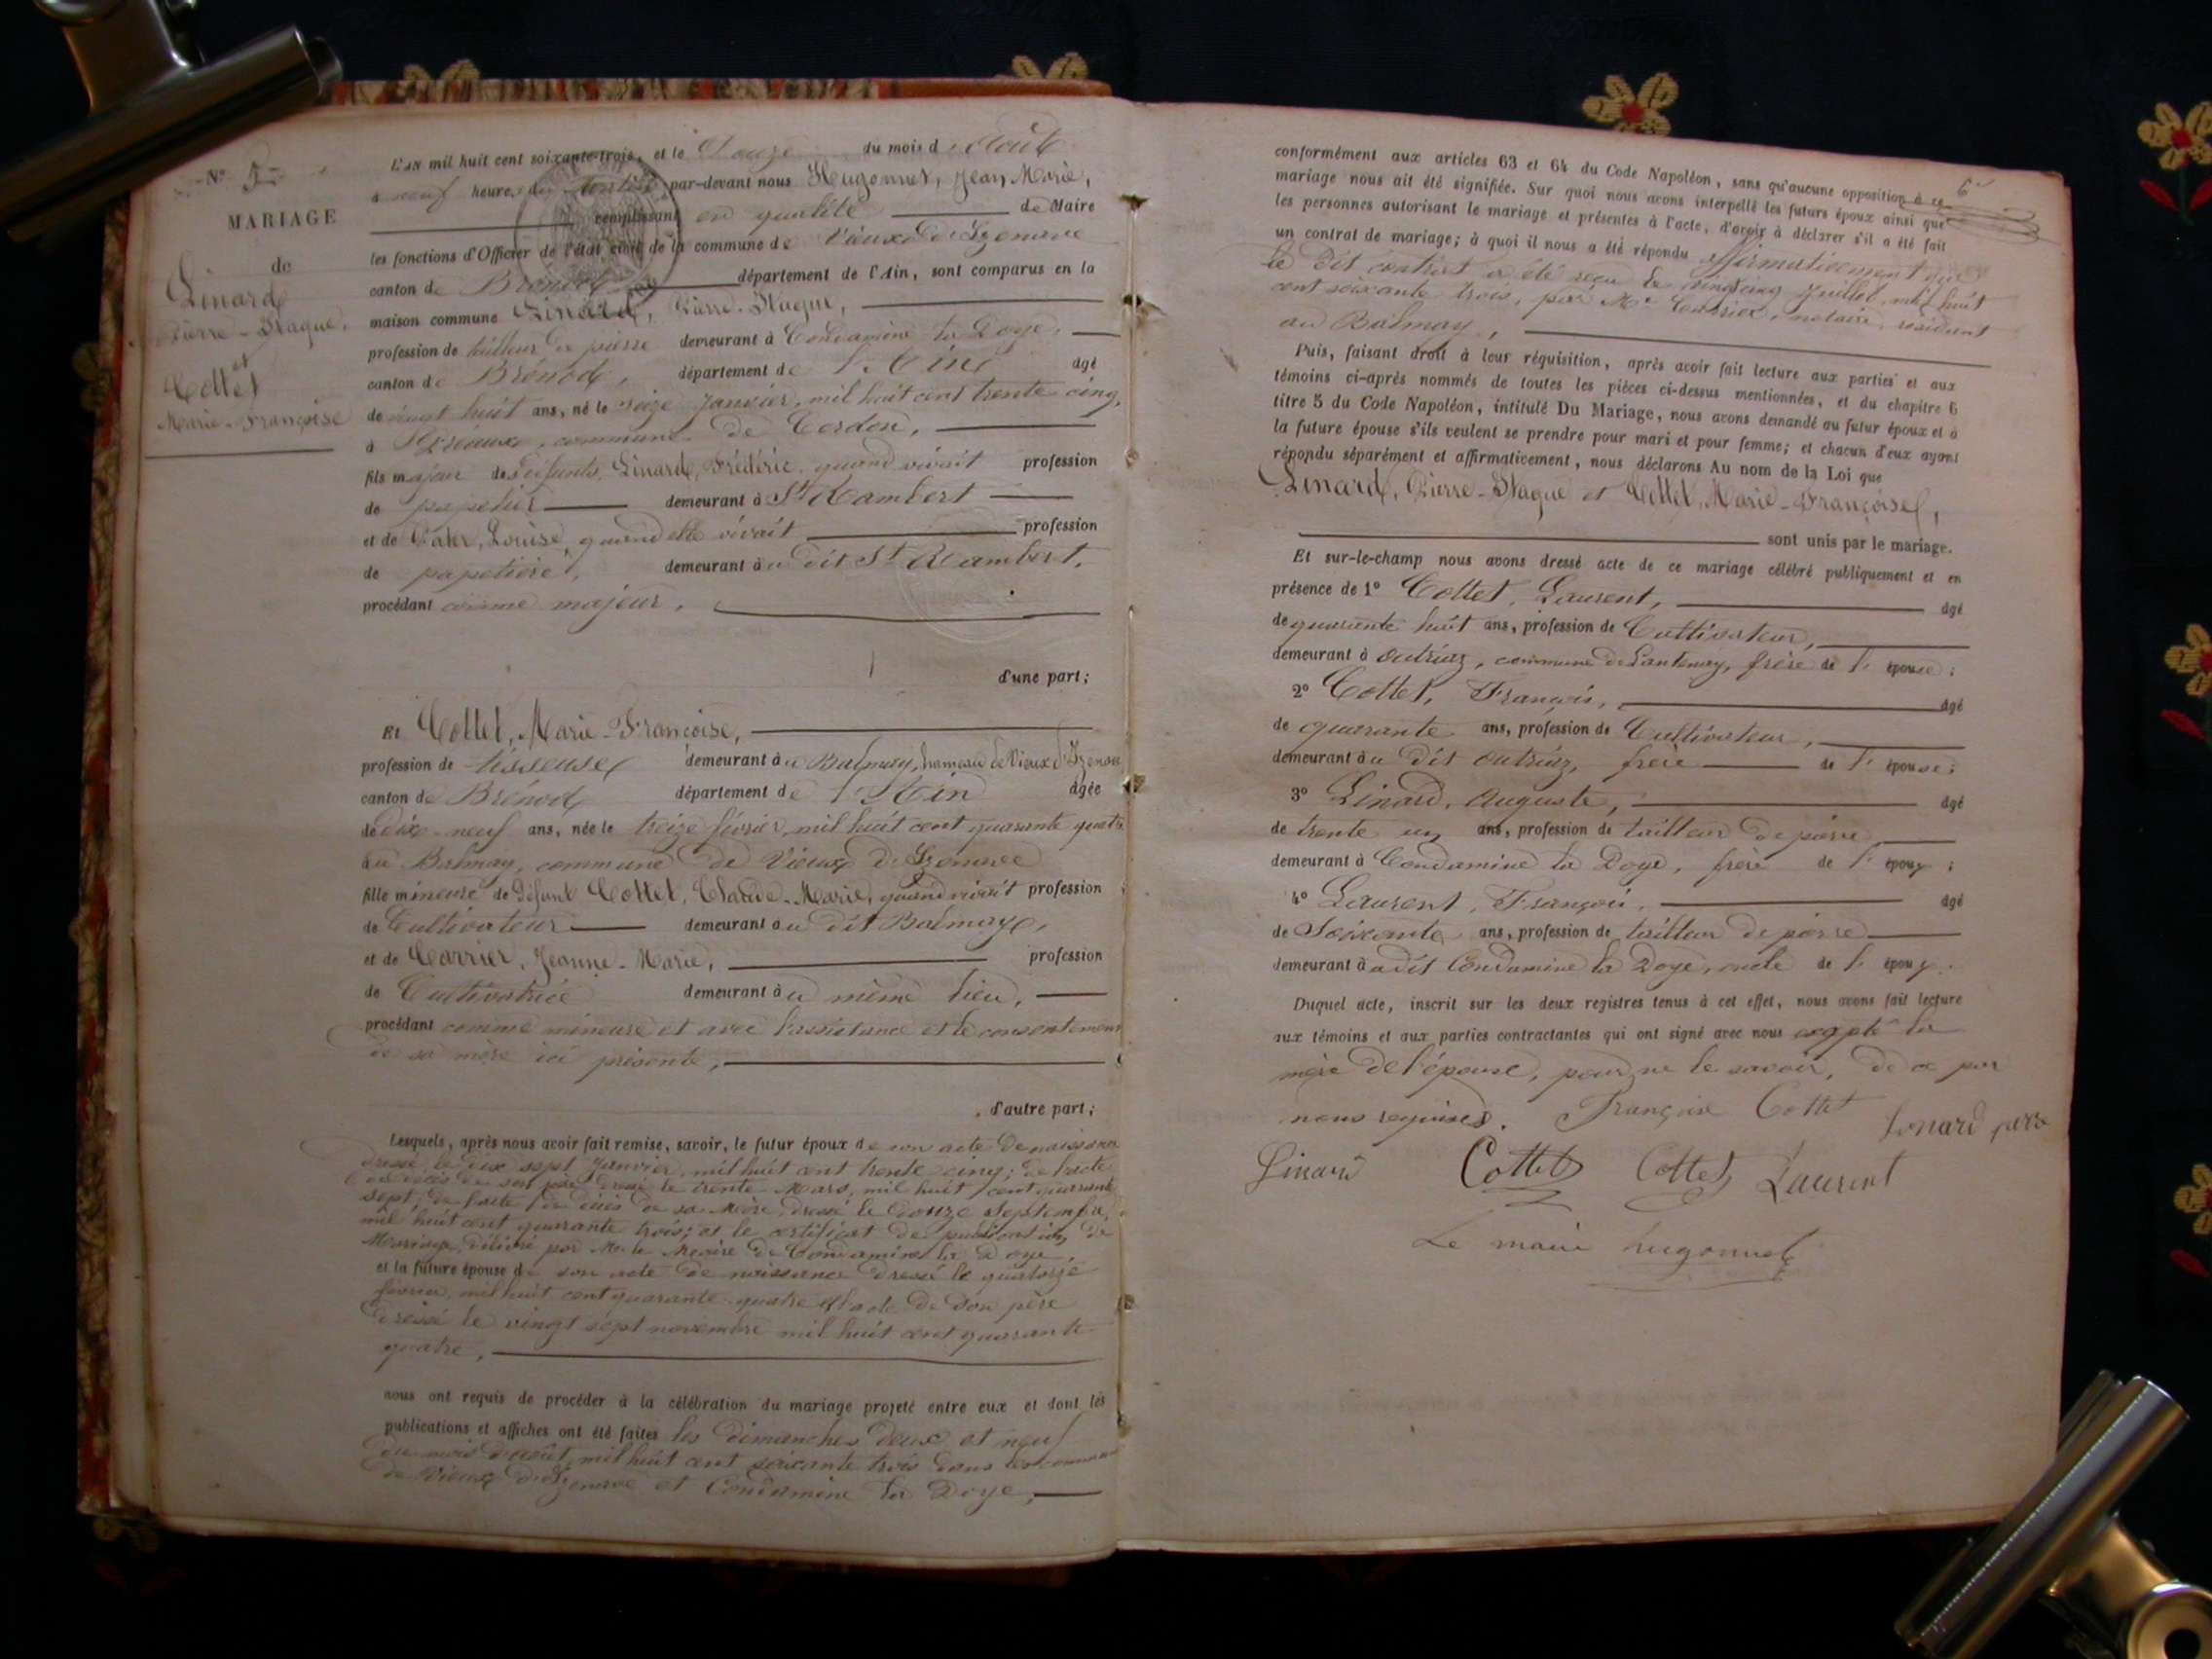 N° 5
MARIAGE
de
Linard
Pierre-Stague,
et
Cottet
Marie-Françoise
L'AN mil huit cent soixante-trois, et le Douze du mois d'Août
à neuf heures du par-devant nous Hugonnet, Jean Marie,
remplissant en qualité de Maire
les fonctions d'Officier de l'état civil de la commune de Vieux d'Izenave
canton de Brénod département de l'Ain, sont comparus en la
maison commune Linard, Pierre-Stague,
profession de tailleur de pierre demeurant à Condamine la Doye,
canton de Brénod, département de l'Ain âgé
de vingt huit ans, né le seize Janvier, mil huit cent trente cinq,
à commune de Cerdon,
fils majeur de défunts Linard, Frédéric, quand vivait profession
de papetier demeurant à St Rambert
et de Louise, quand elle vivait profession
de papetière, demeurant au dit St Rambert,
procédant comme majeur,
d'une part;
Et Cottet, Marie-Françoise,
profession de tisseuse demeurant au Balmay, hameau de Vieux d'Izenave
canton de Brénod département de l'Ain âgée
de dix-neuf ans, née le treize février, mil huit cent quarante quatre
au Balmay, commune de Vieux d'Izenave
fille mineure de défunt Cottet, Claude-Marie, quand vivait profession
de Cultivateur demeurant au dit Balmay,
et de Carrier, Jeanne-Marie, profession
de Cultivatrice demeurant au même lieu,
procédant comme mineure et avec l'assistance et le consentement
de sa mère ici présente,
d'autre part;
Lesquels, après nous avoir fait remise, savoir, le futur époux de son acte de naissance
dressé le dix sept Janvier, mil huit cent trente cinq; de l'acte
de décès de son père dressé le trente Mars, mil huit cent quarante
sept; de l'acte de décès de sa mère dressé le douze Septembre,
mil huit cent quarante trois; et le certificat de publication de
Mariage, délivré par Mr le Maire de Condamine la Doye,
et la future épouse de son acte de naissance dressé le quatorze
février, mil huit cent quarante-quatre et l'acte de son père
dressé le vingt sept novembre mil huit cent quarante
quatre,
nous ont requis de procéder à la célébration du mariage projeté entre eux et dont les
publications et affiches ont été faites les dimanches deux et neuf
du mois d'août, mil huit cent soixante trois dans les communes
de Vieux d'Izenave et Condamine la Doye,
6
conformément aux articles 63 et 64 du Code Napoléon, sans qu'aucune opposition à ce
mariage nous ait été signifiée. Sur quoi nous avons interpellé les futurs époux ainsi que
les personnes autorisant le mariage et présentes à l'acte, d'avoir à déclarer s'il a été fait
un contrat de mariage; à quoi il nous a été répondu affirmativement que
le dit contrat a été reçu le vingt cinq Juillet, mil huit
cent soixante trois, par Me notaire, résidant
au Balmay,
Puis, faisant droit à leur réquisition, après avoir fait lecture aux parties et aux
témoins ci-après nommés de toutes les pièces ci-dessus mentionnées, et du chapitre 6
titre 5 du Code Napoléon, intitulé Du Mariage, nous avons demandé au futur époux et à
la future épouse s'ils veulent se prendre pour mari et pour femme; et chacun d'eux ayant
répondu séparément et affirmativement, nous déclarons Au nom de la Loi que
Linard, Pierre-Stague et Cottet, Marie-Françoise,
sont unis par le mariage.
Et sur-le-champ nous avons dressé acte de ce mariage célébré publiquement et en
présence de 1° Cottet, Laurent, âgé
de quarante huit ans, profession de Cultivateur,
demeurant à Outriaz, commune de Lantenay, frère de l'épouse;
2° Cottet, François, âgé
de quarante ans, profession de Cultivateur,
demeurant au dit Outriaz, frère de l'épouse;
3° Linard, Auguste, âgé
de trente un ans, profession de tailleur de pierre
demeurant à Condamine la Doye, frère de l'époux;
4° Laurent, François, âgé
de Soixante ans, profession de tailleur de pierre
demeurant au dit Condamine la Doye, oncle de l'époux.
Duquel acte, inscrit sur les deux registres tenus à cet effet, nous avons fait lecture
aux témoins et aux parties contractantes qui ont signé avec nous excepté la
mère de l'épouse, pour ne le savoir, de ce par
nous requises. Françoise Cottet Linard
Linard Cottet Cottet Laurent
Le maire hugonnet